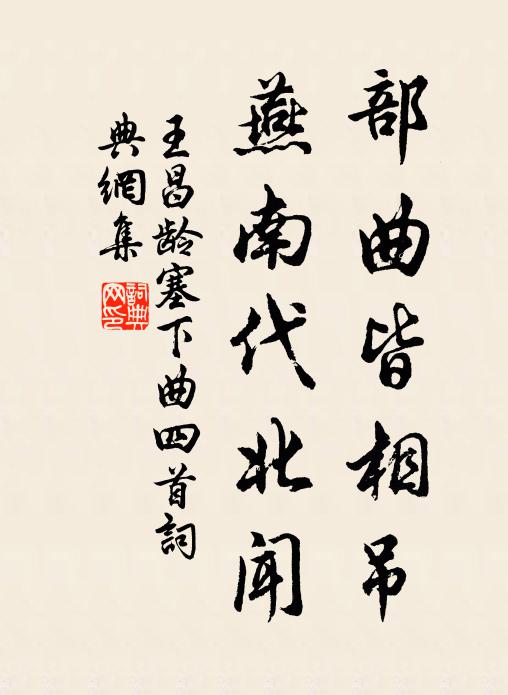 部曲皆相吊
燕南代北闻
王昌龄塞下曲四首詞
典網集
詞典网印